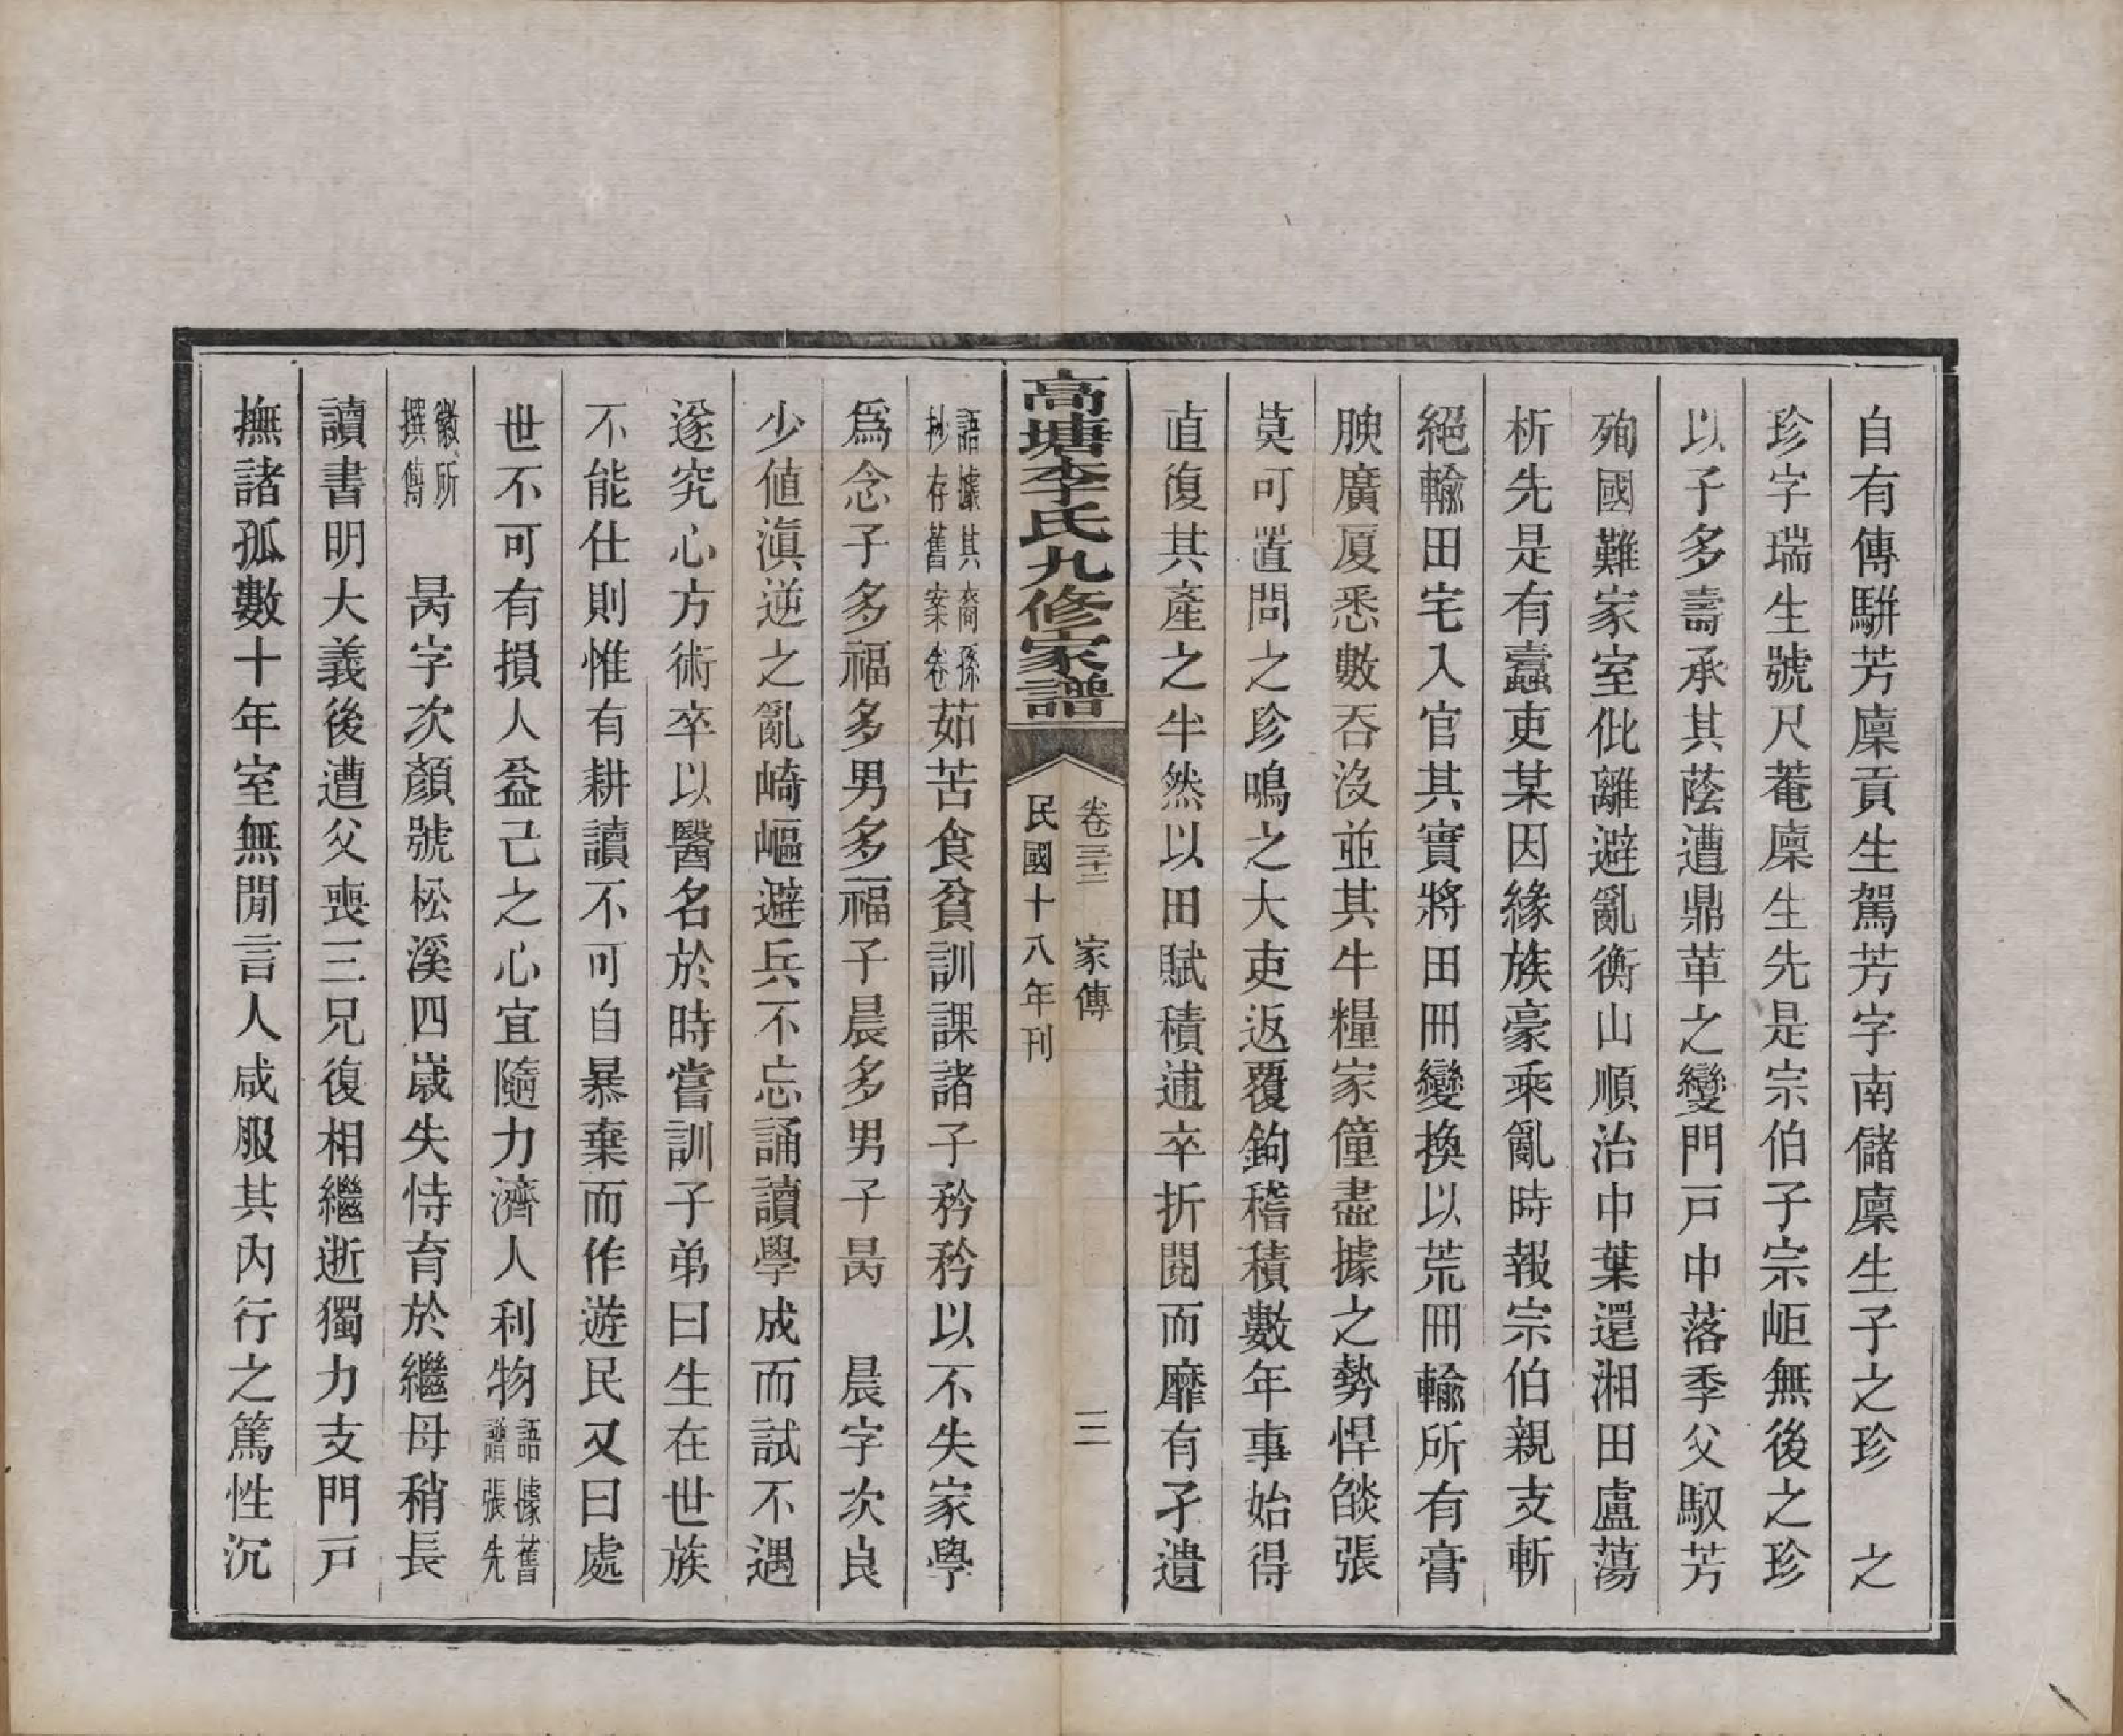 自有傳駢芳廩貢生駕芳字南儲廩生子之珍　之
珍字瑞生號尺菴廩生先是宗伯子宗岠無後之珍
以子多壽承其蔭遭鼎革之變門戸中落季父馭芳
殉國難家室仳離避亂衡山順治中葉還湘田盧蕩
析先是有蠹吏某因緣族豪乘亂時報宗伯親支斬
絕輸田宅入官其實將田冊變換以荒冊輸所有膏
腴廣厦悉數吞沒並其牛糧家僮盡據之勢悍燄張
莫可置問之珍鳴之大吏返覆鉤稽積數年事始得
直復其產之半然以田賦積逋卒折閱而靡有孑遺
高塘李氏九修家譜
卷三十二　家傳　三
民國十八年刊
語據其裔孫
抄存舊案卷
茹苦食貧訓課諸子矜矜以不失家學
爲念子多福多男多福子晨多男子昺　晨字次良
少値滇逆之亂崎嶇避兵不忘誦讀學成而試不遇
遂究心方術卒以醫名於時嘗訓子弟曰生在世族
不能仕則惟有耕讀不可自暴棄而作遊民又曰處
世不可有損人益己之心宜隨力濟人利物
語據舊
譜張先
徽所
撰傳
昺字次顏號松溪四嵗失恃育於繼母稍長
讀書明大義後遭父喪三兄復相繼逝獨力支門戸
撫諸孤數十年室無閒言人咸服其內行之篤性沉